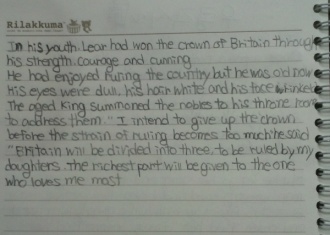 Rilakkuma
In his youth, Lear had won the crown of Britain through
his strength, courage and cunning
He had enjoyed ruling the country but he was old now
His eyes were dull, his hair white and his face
The aged king summoned the nobles to his throne room
to address them. "I intend to give up the crown
before the strain of ruling becomes too much he said
"Britain will be divided into three, to be ruled by my
daughters. The richest part will be given to the one
who loves me most